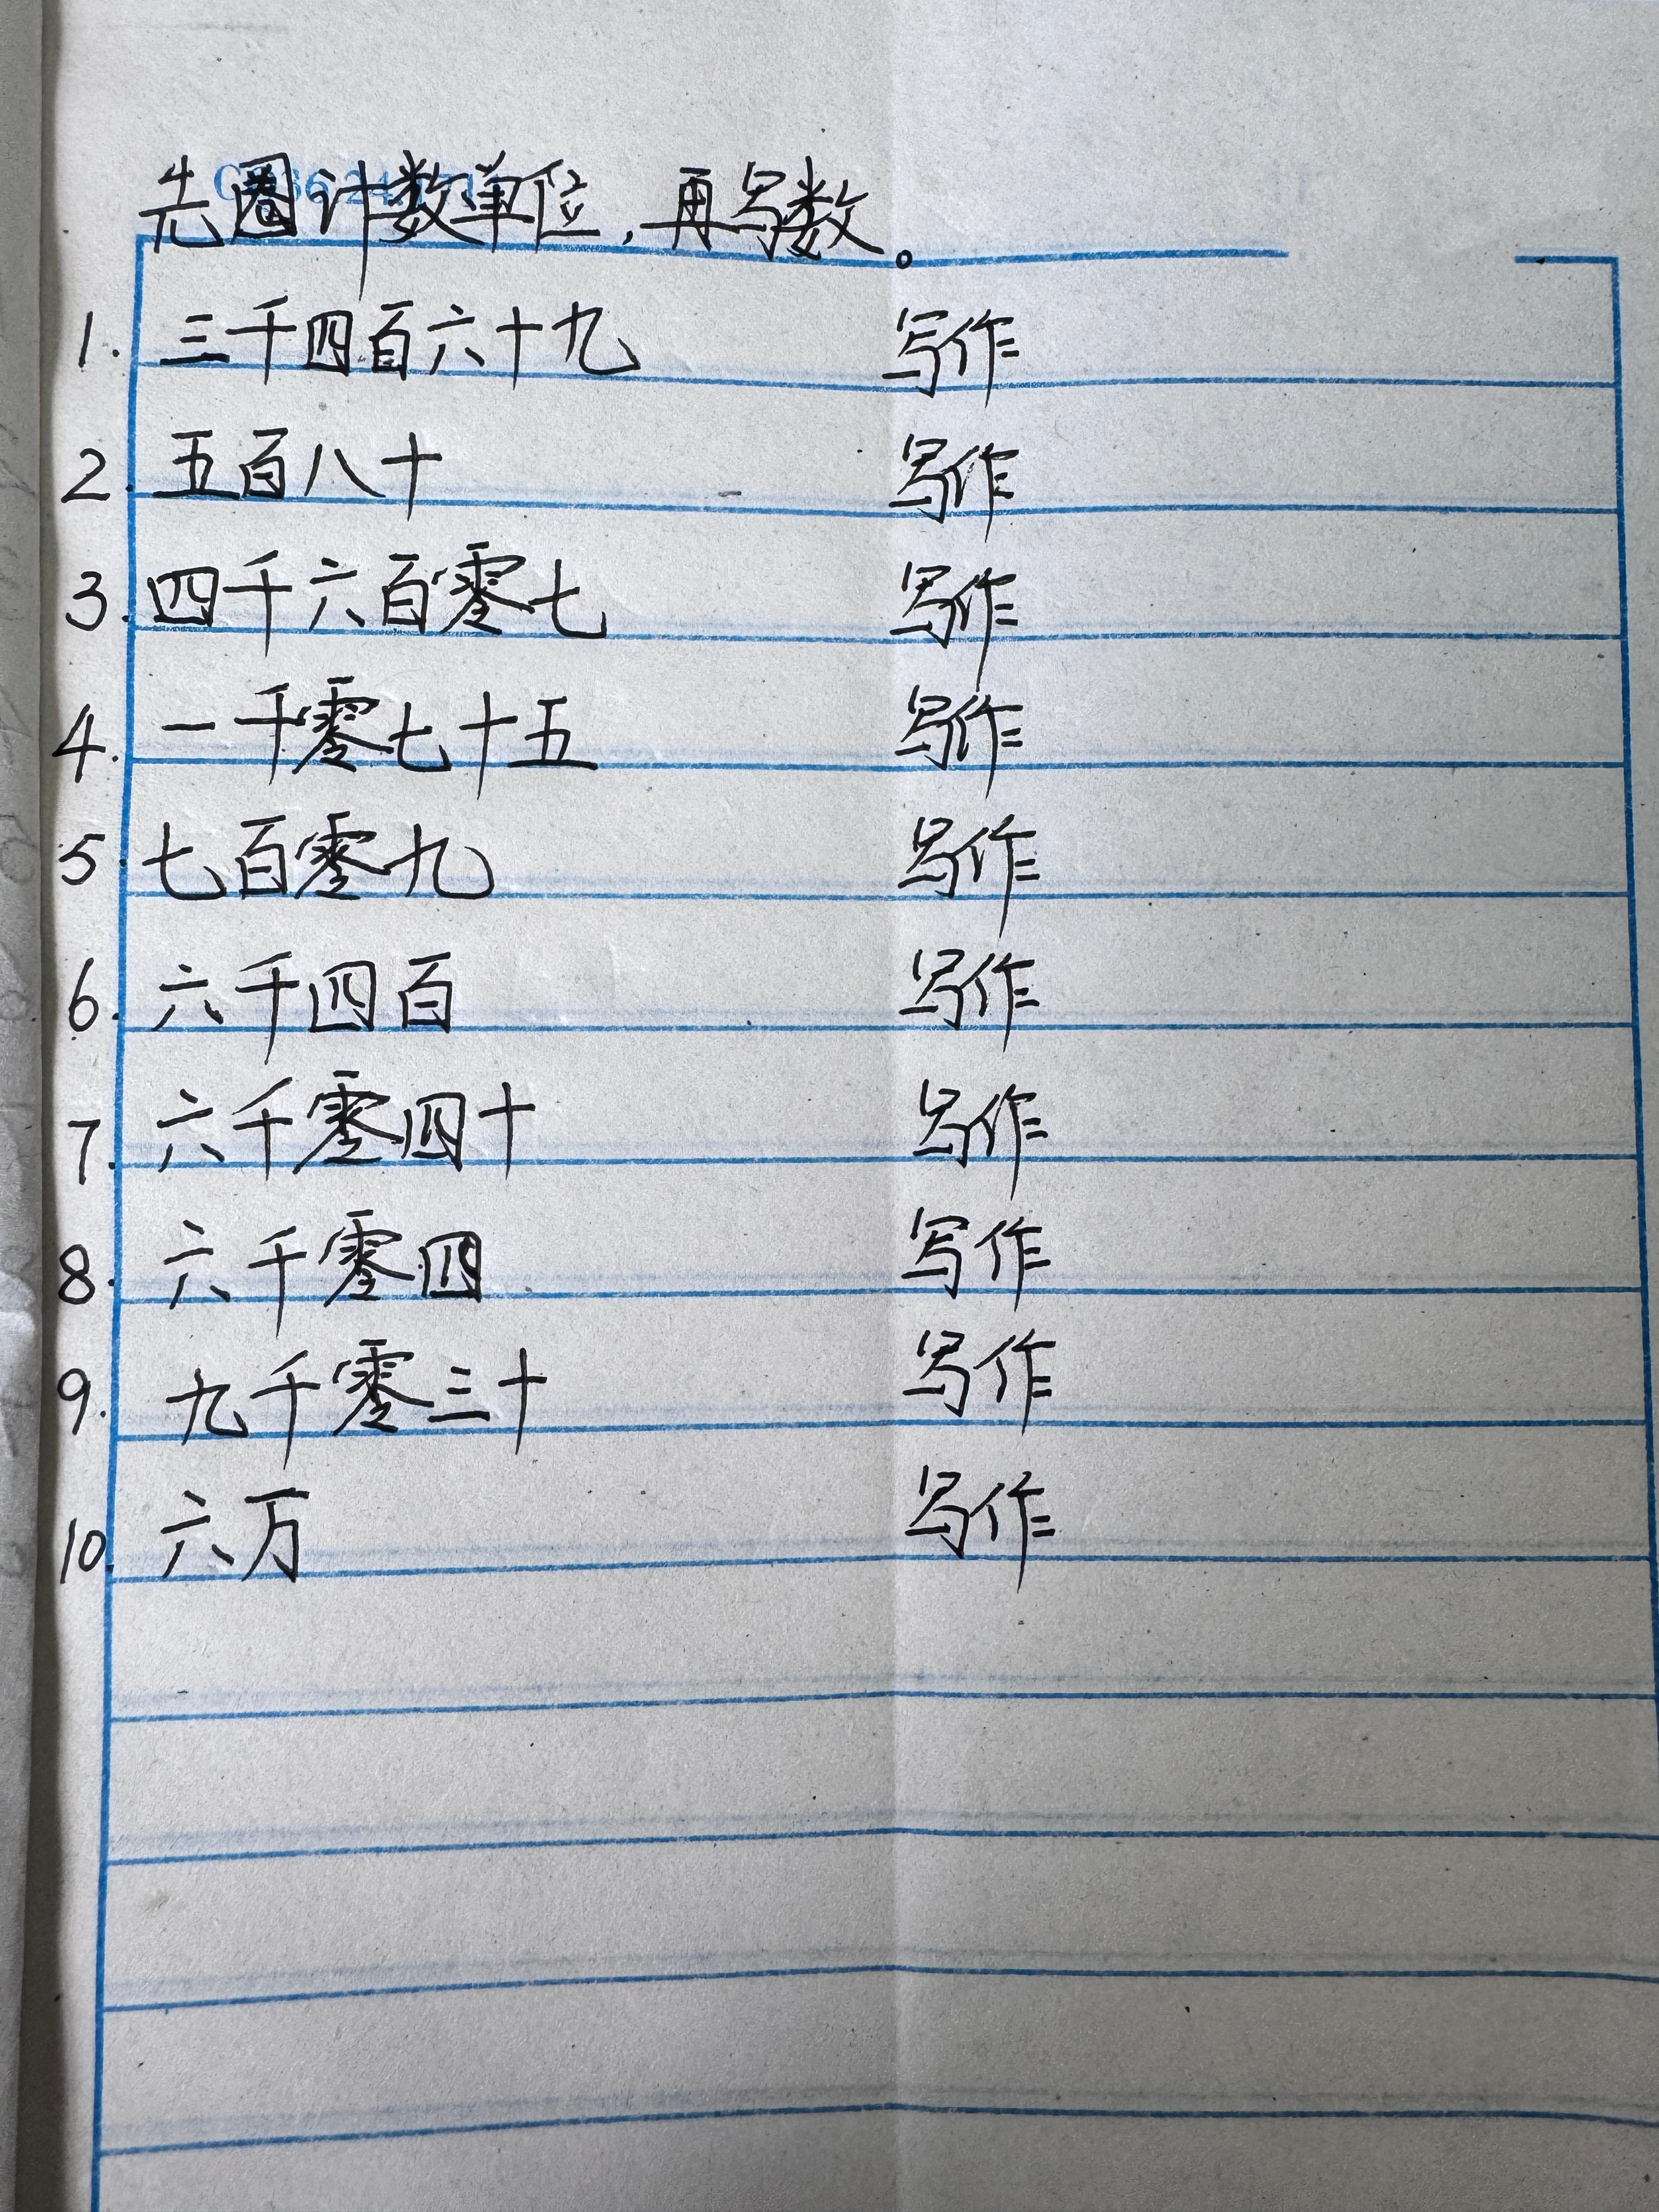 先圈计数单位，再写数。
1. 三千四百六十九 写作
2. 五百八十 写作
3. 四千六百零七 写作
4. 一千零七十五 写作
5. 七百零九 写作
6. 六千四百 写作
7. 六千零四十 写作
8. 六千零四 写作
9. 九千零三十 写作
10. 六万 写作